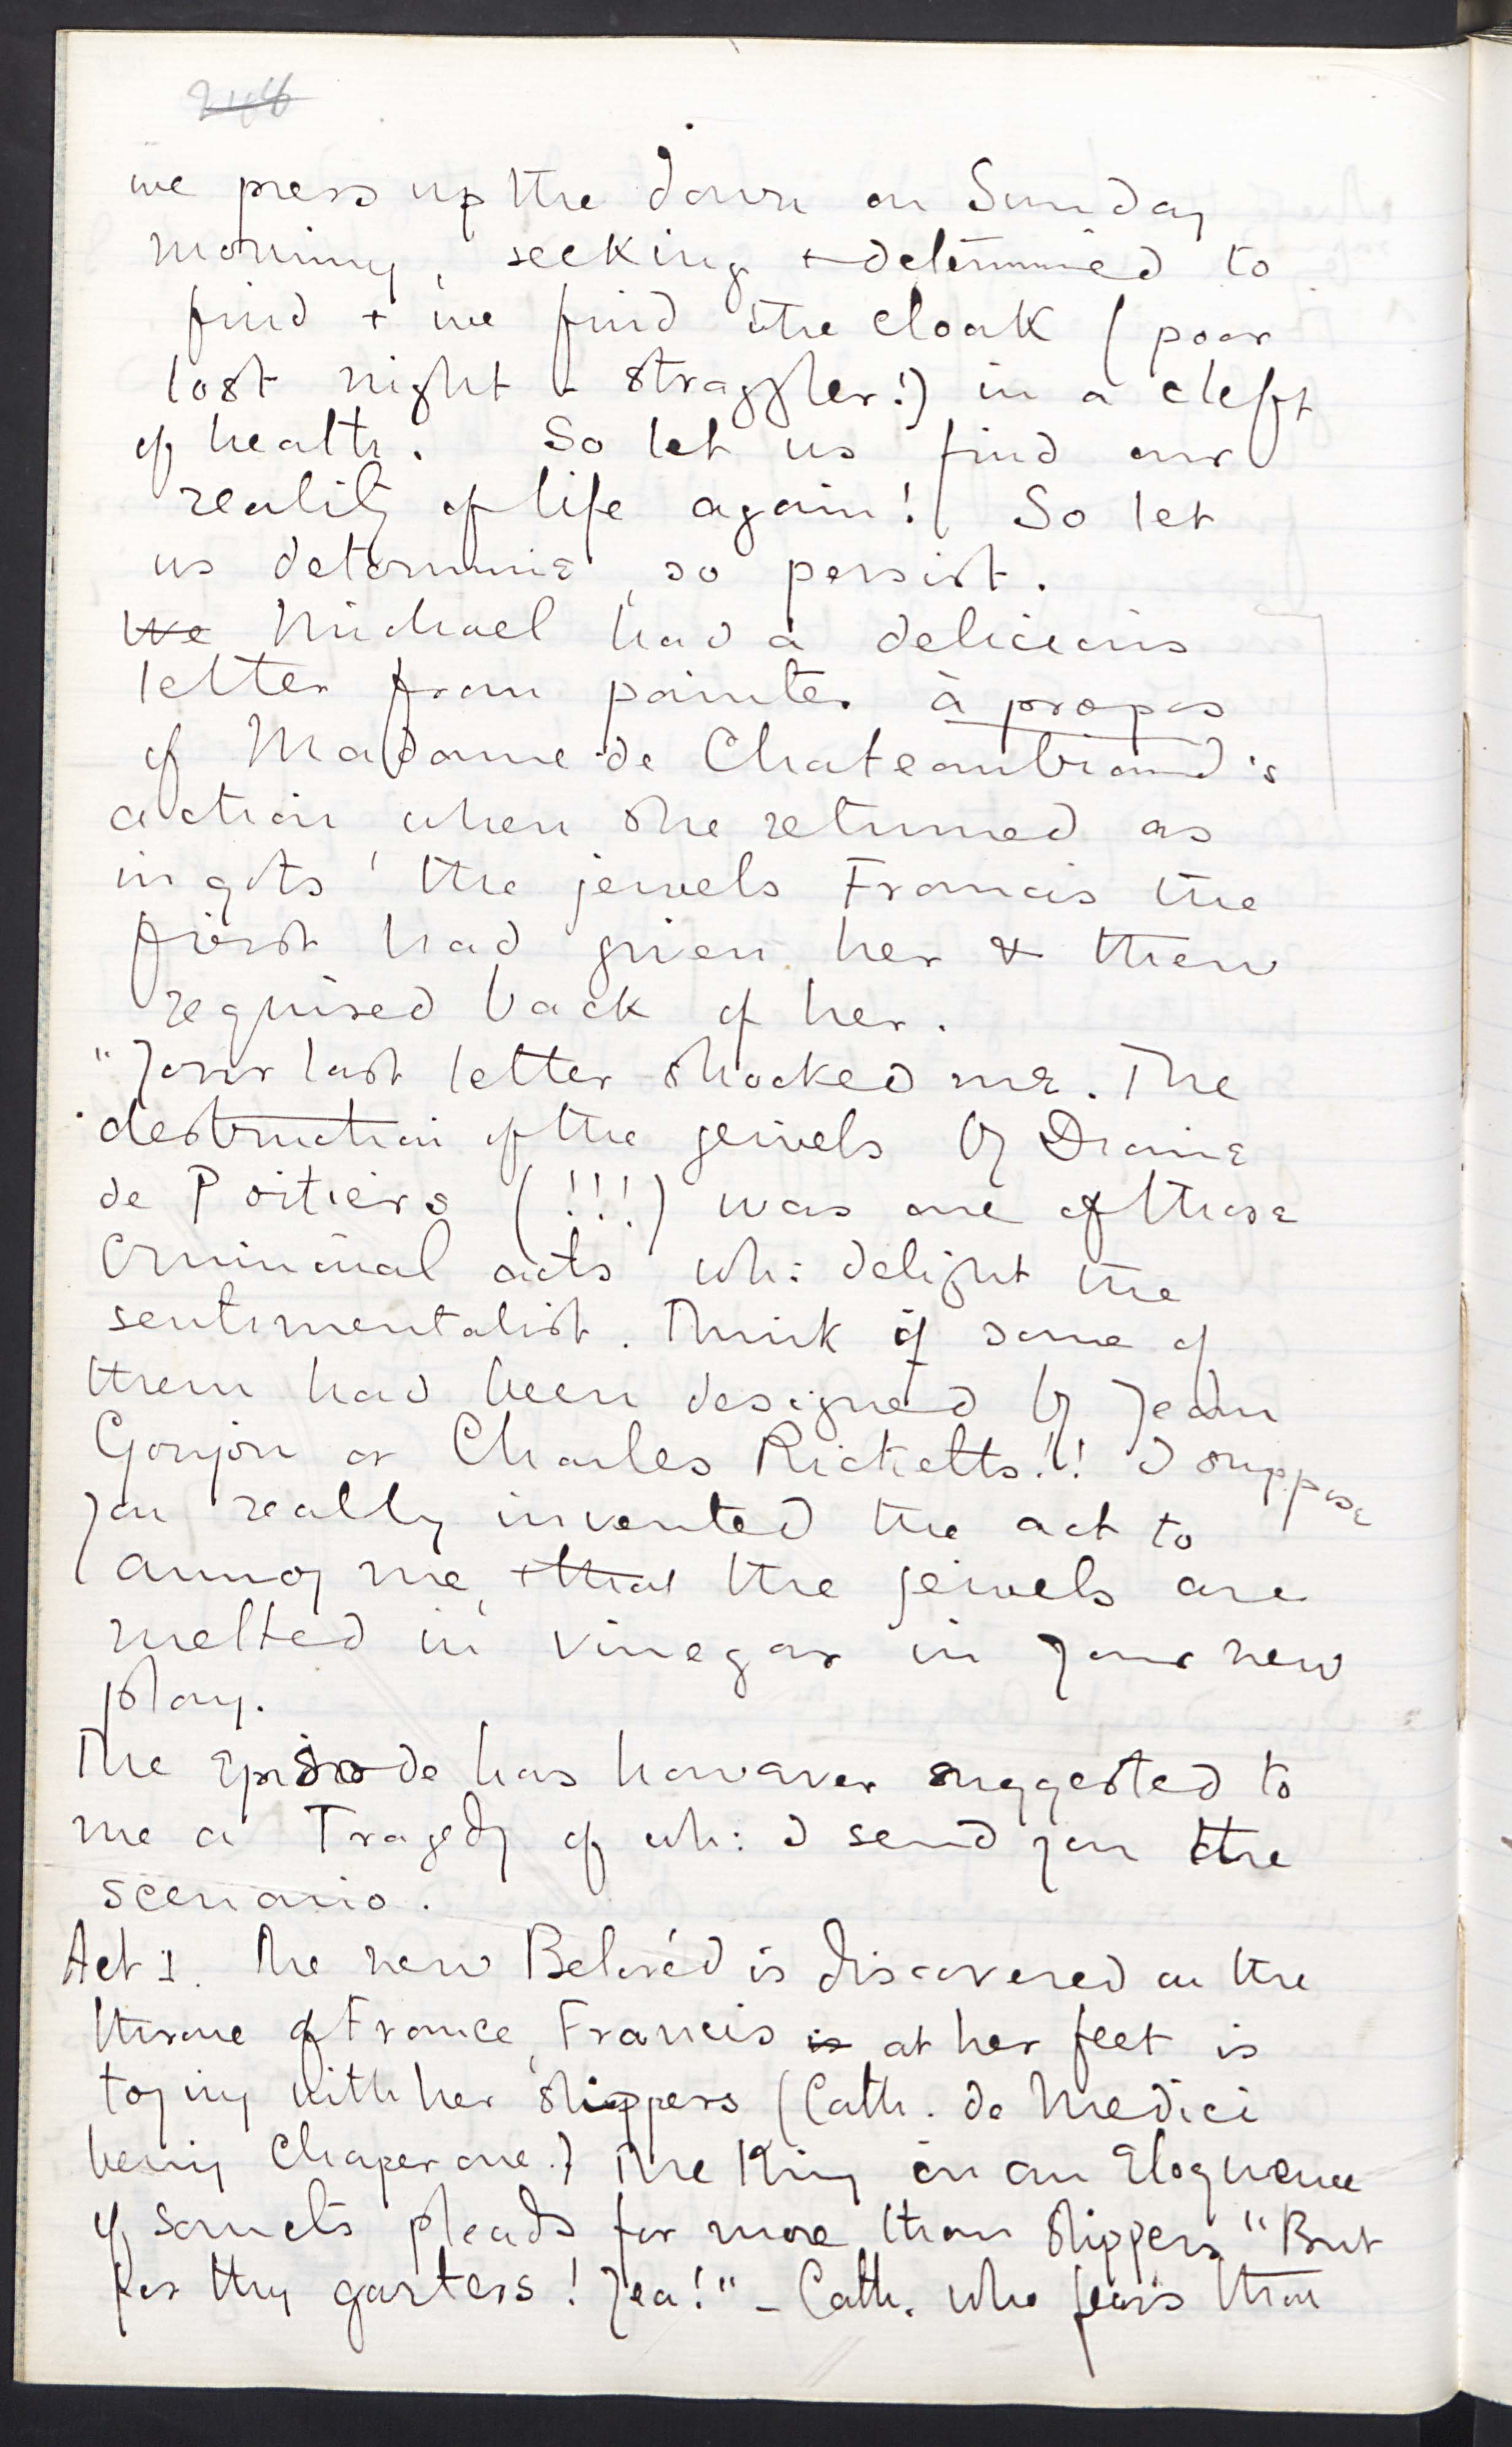 we press up the down on Sunday
morning, seeking + determined to
find + we find the cloak (poor
lost night - straggler!) in a cleft
of heath. So let us find our
reality of life again! So let
us determine, so persist.
We Michael had a delicious
letter from painter à propos
of Madame de Chateaubriand's
action when she returned as
ingots the jewels Francis the
first had given her & then
required back of her.
"Your last letter shocked me. The
destruction of the jewels by Diane
de Poitiers (!!!) was one of those
Criminal acts wh: delight the
sentimentalist. Think if some of
them had been designed by Jean
Goujon or Charles Ricketts!! I suppose
you really invented the act to
annoy me, + that the jewels are
melted in vinegar in your new
play.
The episode has however suggested to
me a Tragedy of wh: I send you the
scenario.
Act 1. The new Belovéd is discovered on the
throne of France, Francis is at her feet is
toying with her slippers (Cath. de Medici
being Chaperone.) The King in an Eloquence
of sonnets pleads for more than slippers "But
for thy garters! Yea!" - Cath. who fears that